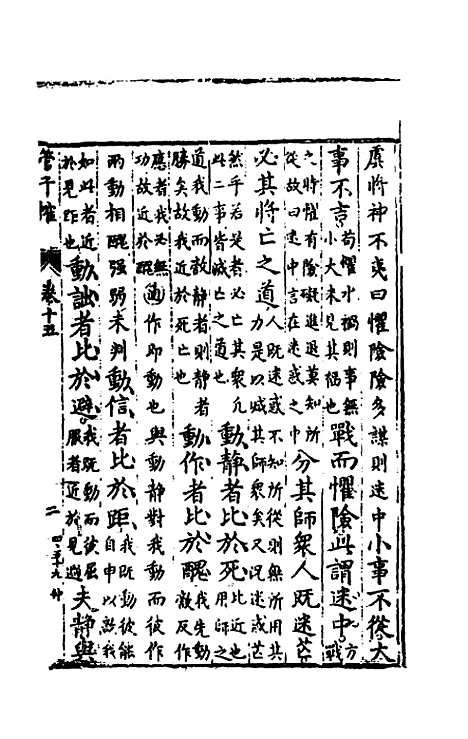 虞將神不夷曰懼險險多謀則迷中小事不從大
事不吉苟懼水禍則事無小大未見其福也戰而懼險此謂迷中方戰
之時懼有險礙進退莫知所從故曰迷中言在迷惑之中分其師衆人既迷芒
必其將亡之道人既迷或不知所從則無所用其力是以喊其師衆矣又況迷或芒
然乎若是者必亡其衆凡此二事皆滅亡之道也動靜者比於死比近也用師之
道我動而敵靜者則靜者勝矣故我近於死亡也動作者比於醜我先動敵反作
應者我必無功故近於醜作即動也與動靜對我動而彼作
兩動相醜強弱未判動信者比於距我既動彼能自申以敵我
如此者近於見距也動詘者比於避我既動而彼屈服者近於見避夫靜與
管子榷 卷十五 二